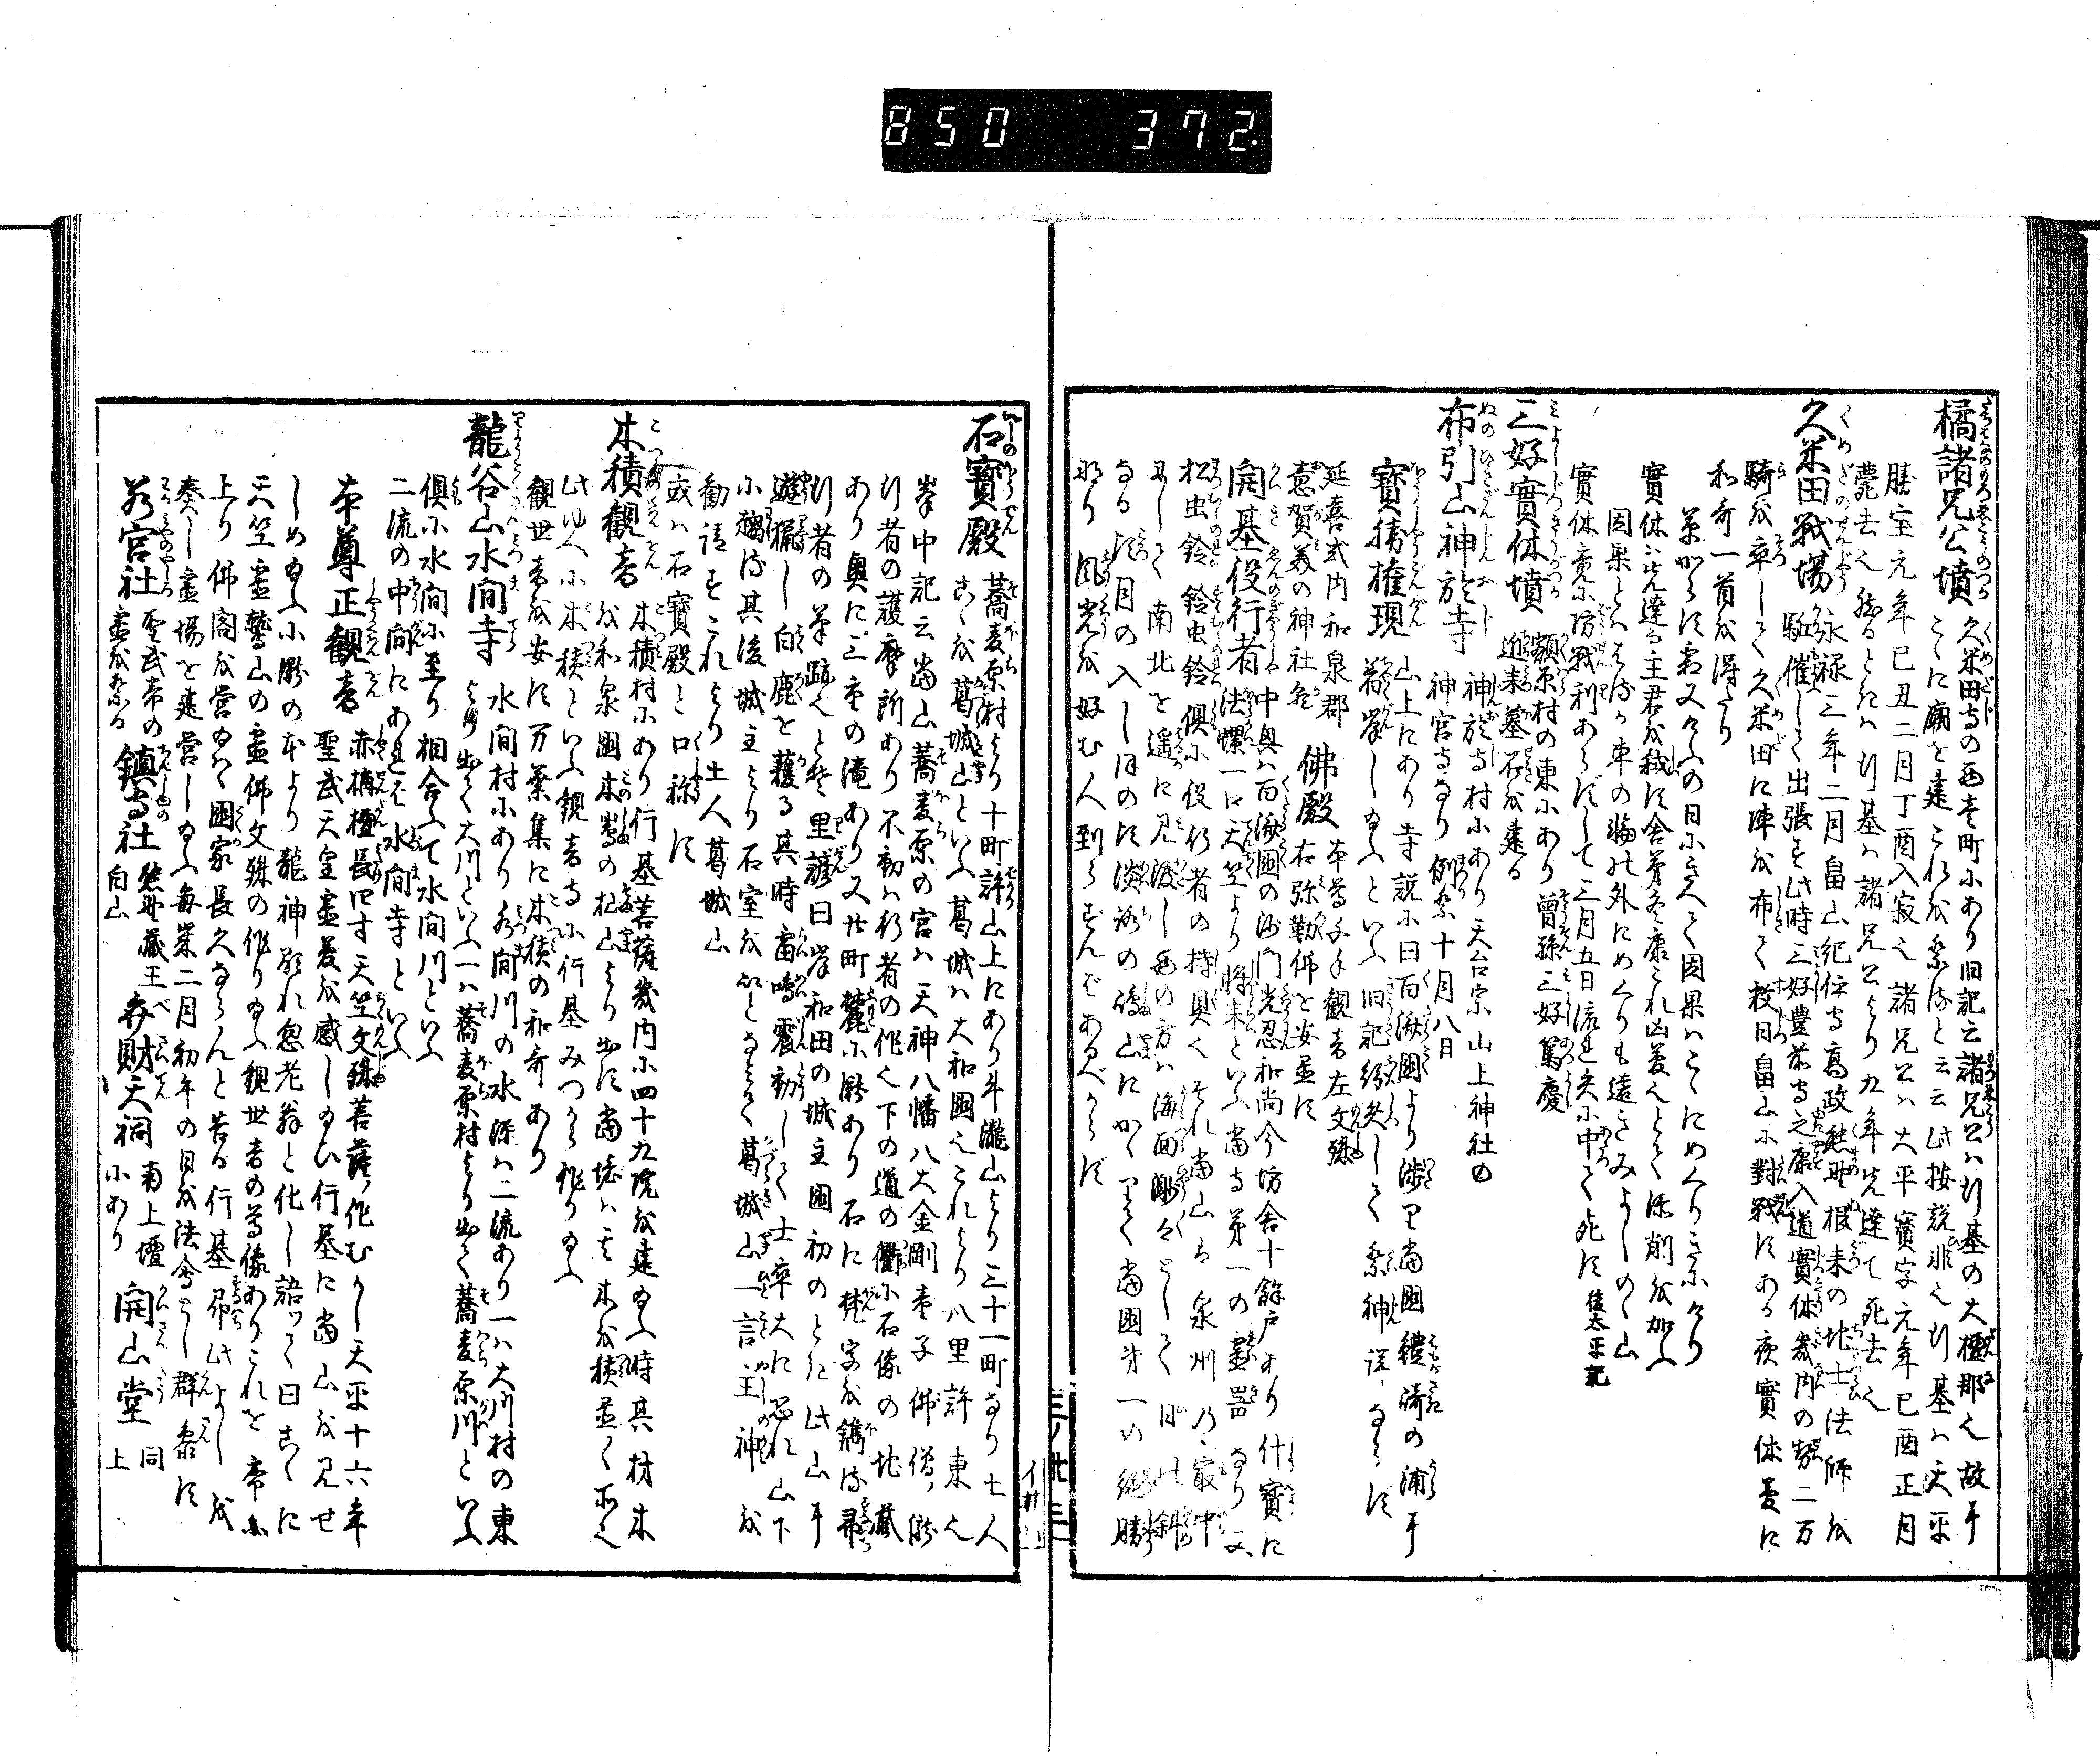 850 372.
橘諸兄公墳 久米田寺の西壱町にあり旧記云諸兄公ハ行基の大檀那也故に
こゝに廟を建これを祭ると云云此按説非也行基ハ天平
勝宝元年己丑二月丁酉入寂也諸兄公ハ大平寳字元年己酉正月
薨去也然るときハ行基ハ諸兄公より九年先達て死去也
久米田戦場 永禄三年二月畠山紀伊守高政熊野根来の地士法師を
駈催して出張を此時三好豊前守之康入道實休畿内の勢二万
騎を率して久米田に陣を布て数日畠山に對戦すある夜實休夢に
和哥一首を得たり
草からす霜又けふの日にきえて因果ハこゝにめくりきにけり
實休ハ先達而主君を弑す舎弟冬康これ凶夢也とて添削を加ふ
因果とハはるか車の輪の外にめくりも遠きみよしのゝ山
實休竟に防戦利あらずして三月五日流れ矢に中て死す 後太平記
三好實休墳 額原村の東にあり曾孫三好篤慶
近来墓石を建る
布引山神於寺 神於寺村にあり天台宗山上神社の
神宮寺なり例祭十月八日
寳勝権現 山上にあり寺説に曰百済國より渉り当國繾綣の浦に
着岸し給ふといふ旧記紛失して祭神詳ならす
延喜式内和泉郡
意賀美の神社
佛殿 本尊千手観音左文殊
右弥勒佛を安置す
開基役行者 中興ハ百済國の沙門光忍和尚今坊舎十餘戸あり什寳に
法螺一口天竺より将来といふ当寺第一の霊器なり又
松虫鈴鈴虫鈴倶に役行者の持具也それ当山ハ泉州乃最中
にして南北を遥に見渡し西の方ハ海面眇々として日の斜
なる頃月の入しほの頃淡路の嶋山にかくりて当国第一の絶勝
なり風光を好む人到らずんばあるべからず
三ノ廿三
石寳殿 蕎麦原村より十町許山上にあり牛瀧山より三十一町なり土人
こゝを葛城山といふ葛城ハ大和國也これより八里許東也
峯中記云当山蕎麦原の宮ハ天神八幡八大金剛童子佛僧瀧
行者の護摩所あり不動ハ行者の作也下の道の衢に石像の地蔵
あり奥に三重の滝あり又廿町麓に瀧あり石に梵字を鐫る尋
行者の筆跡也と云里諺曰岸和田の城主國初のとき此山に
遊獵し白鹿を獲る其時雷鳴震動して士卒大に恐れ山下
に趨る其後城主より石室を いとなミて葛城山一言主神を
勧請すこれより土人葛城山
或ハ石寳殿と口称す
木積観音 木積村にあり行基菩薩畿内に四十九院を建給ふ時其材木
を和泉國木嶌の杣山より出す当境ハ其木を積置く所也
此ゆへに木積といふ観音寺に行基みつから作り給ふ
観世音を安す万葉集に木積の和哥あり
龍谷山水間寺 水間村にあり水間川の水源ハ二流あり一ハ大川村の東
より出て大川といふ一ハ蕎麦原村より出て蕎麦原川といふ
倶に水間に至り相合ふて水間川といふ
二流の中間にあれば水間寺といふ
本尊正観音 赤栴檀長四寸天竺文殊菩薩作むかし天平十六年
聖武天皇霊夢を感し給ひ行基に当山を見せ
しめ給ふ小瀧の本より龍神顕れ忽老翁と化し語つて曰爰に
天竺霊鷲山の霊佛文殊の作り給ふ観世音の尊像ありこれを帝に
上り佛閣を営なハ國家長久ならんと告る行基帰此よしを
奏し霊場を建営し給ふ毎葉二月初午の日を法會とし群参す
若宮社 聖武帝の
霊を祭る
鎮守社 熊野蔵王
白山
弁財天祠 南上壇
にあり
開山堂 同
上